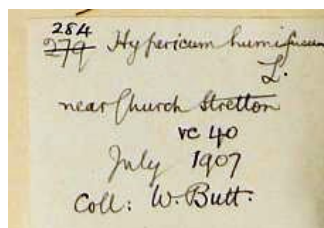 284
279 Hypericum humifusum
L.
near Church Stretton
vc 40
July 1907
Coll: W. Butt.